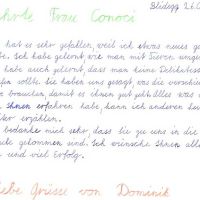 ehrte Frau Conoci
Blidegg 26.
hat es sehr gefallen, weil ich etwas neues ge
be. Ich habe gelernt wie man mit Tieren umge
habe auch gelernt, dass man keine Delikatess
sollte. Sie haben uns gesagt, was die verschie
brauchen, damit es ihnen gut geht. Alles was
Ihnen erfahren habe, kann ich anderen
erklären.
bedanke mich sehr dass Sie zu uns in die
gekommen sind. Ich wünsche Ihnen alles
und viel Erfolg.
iebe Grüsse von Dominik